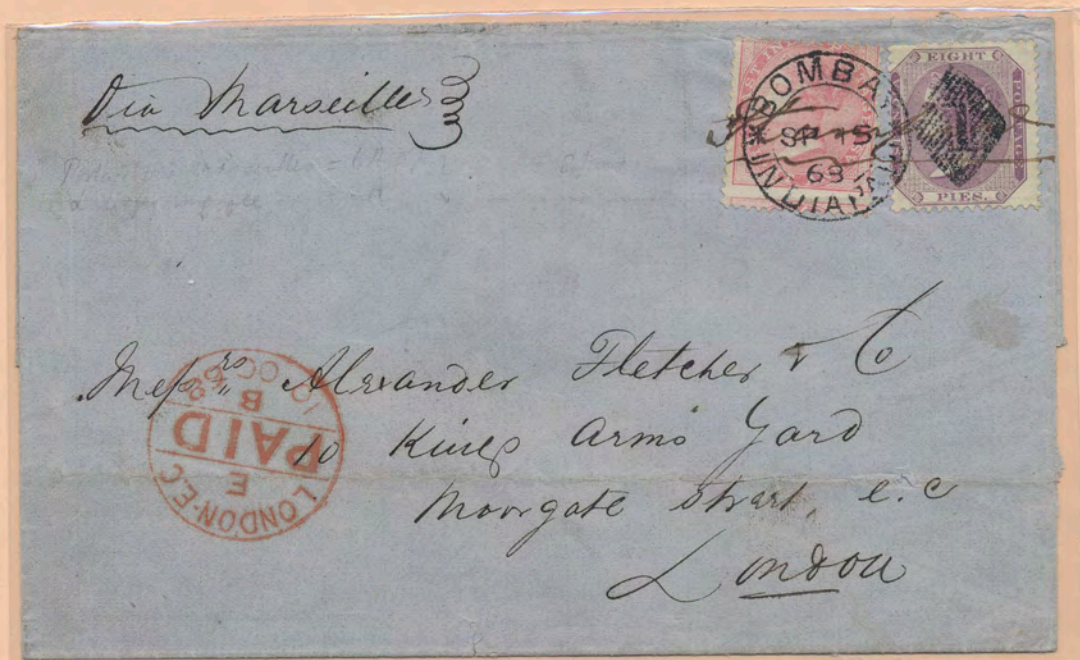 Via Marseilles
EIGHT
PIES.
BOMBAY
SP 15
63
INDIA
Messrs Alexander Fletcher & Co
10 Kings Arms Yard
Moorgate Street, e.c
London
LONDON·E.C
E
PAID
B
10 OC 63